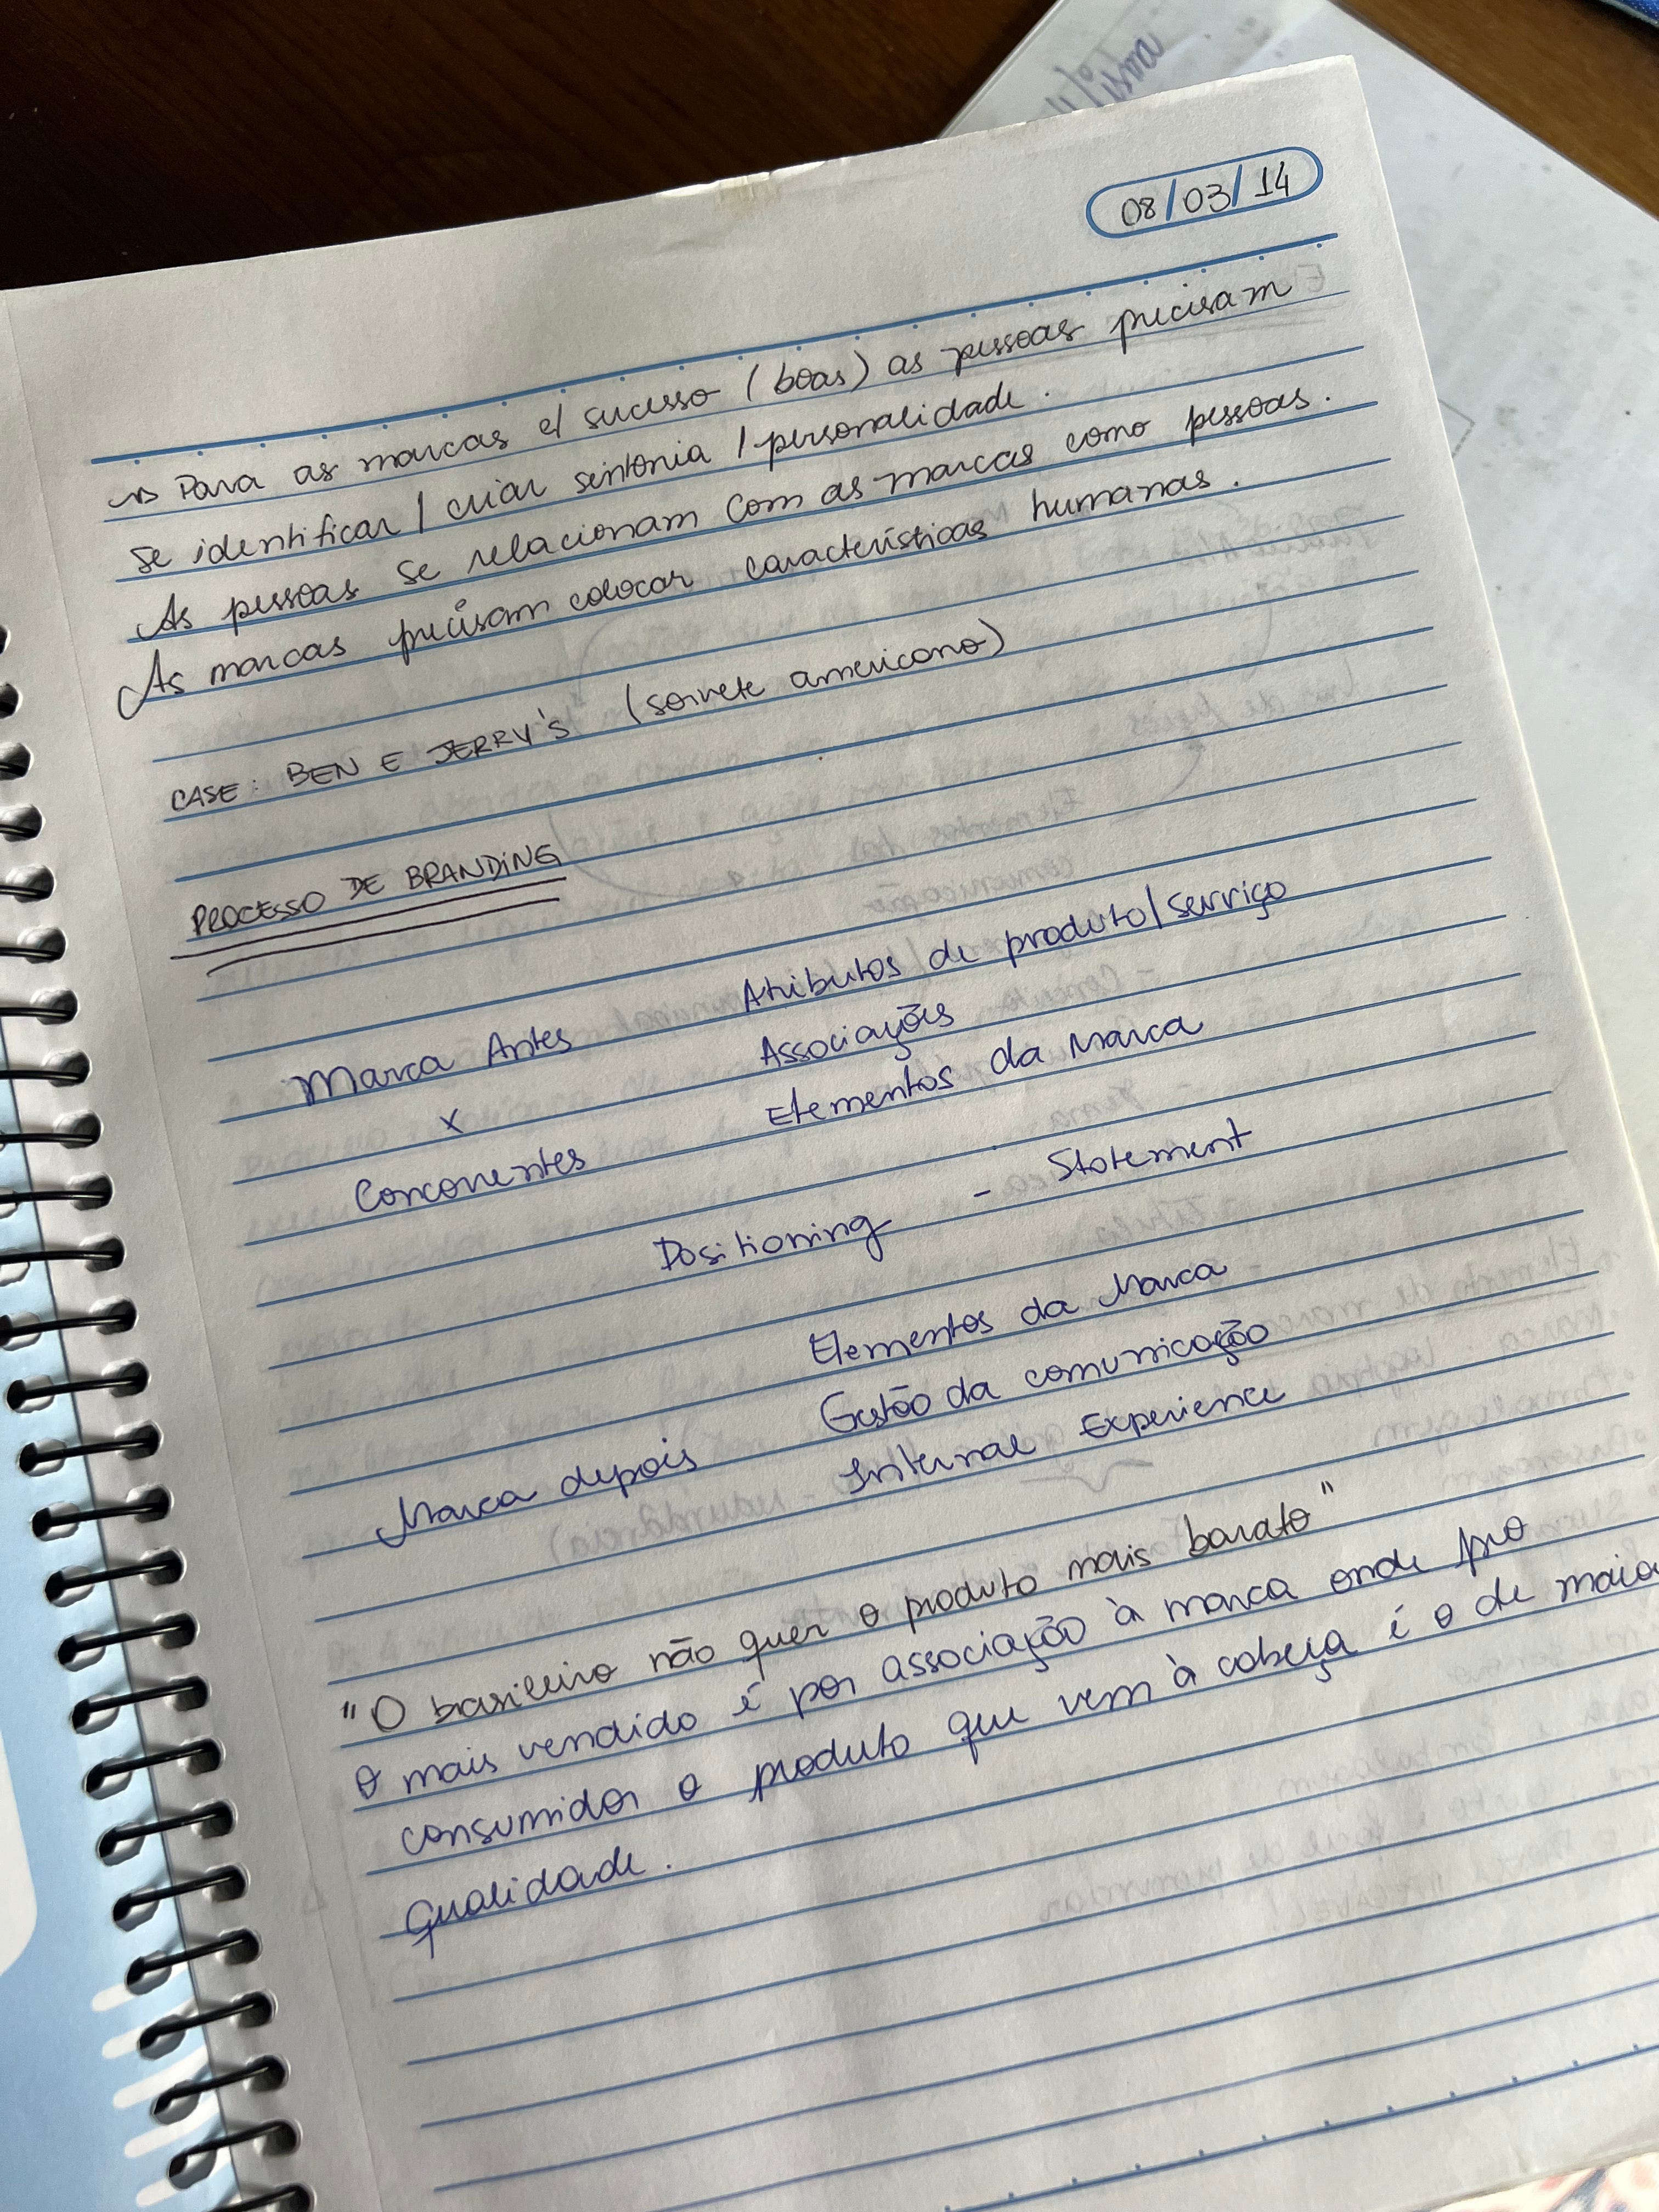 08/03/14
Para as marcas c/ sucesso (boas) as pessoas precisam
se identificar / criar sintonia / personalidade.
As pessoas se relacionam com as marcas como pessoas.
As marcas precisam colocar características humanas.
CASE: BEN E JERRY'S (sorvete americano)
PROCESSO DE BRANDING
Atributos de produto/serviço
Marca Antes Associações
x Elementos da Marca
Concorrentes
Positioning - Statement
Elementos da Marca
Gestão da comunicação
Marca depois Internal Experience
"O brasileiro não quer o produto mais barato"
O mais vendido é por associação à marca onde pro
consumidor o produto que vem à cabeça é o de maior
qualidade.